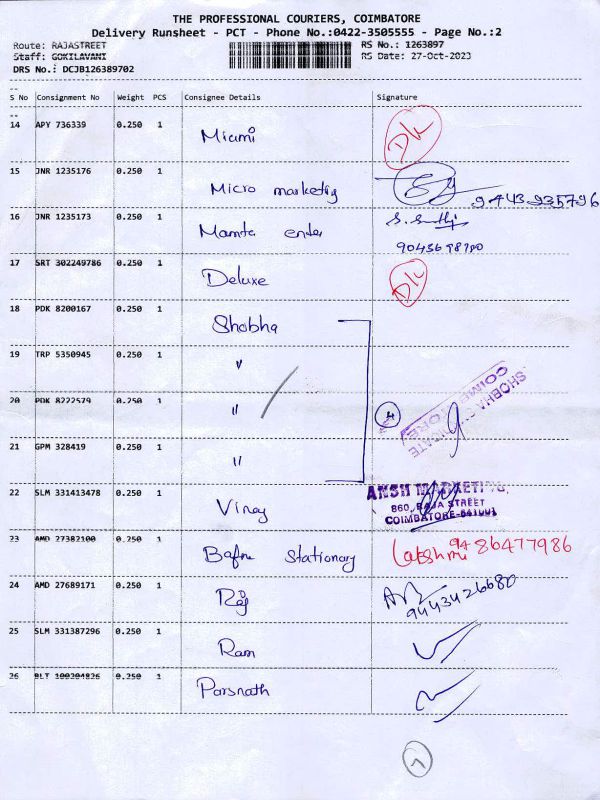 THE PROFESSIONAL COURIERS, COIMBATORE
Delivery Runsheet - PCT - Phone No.:0422-3505555 - Page No.:2
Route: RAJASTREET RS No.: 1263897
Staff: GOKILAVANI RS Date: 27-Oct-2023
DRS No.: DCJB126389702
S No Consignment No Weight PCS Consignee Details Signature
14 APY 736339 0.250 1 Miami DL
15 JNR 1235176 0.250 1 Micro marketig 9443935796
16 JNR 1235173 0.250 1 Mamta enter
9043698780
17 SRT 302249786 0.250 1 Deluxe DL
18 PDK 8200167 0.250 1 Shobha
19 TRP 5350945 0.250 1 "
20 PDK 8222579 0.250 1 " 4
SHOBHA SYNDICATE
COIMBATORE
21 GPM 328419 0.250 1 "
22 SLM 331413478 0.250 1 Vinay
ANSH MARKETING,
860, RAJA STREET
COIMBATORE-641001
23 AMD 27382100 0.250 1 Bafna Stationary Lakshmi 9486477986
24 AMD 27689171 0.250 1 Raj 9443426680
25 SLM 331387296 0.250 1 Ram
26 BLT 100204826 0.250 1 Parsnath